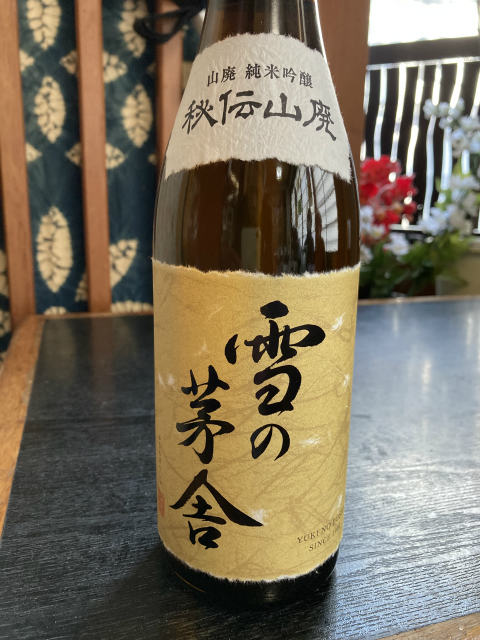 山廃 純米吟醸
秘伝山廃
雪の
茅舎
SINCE